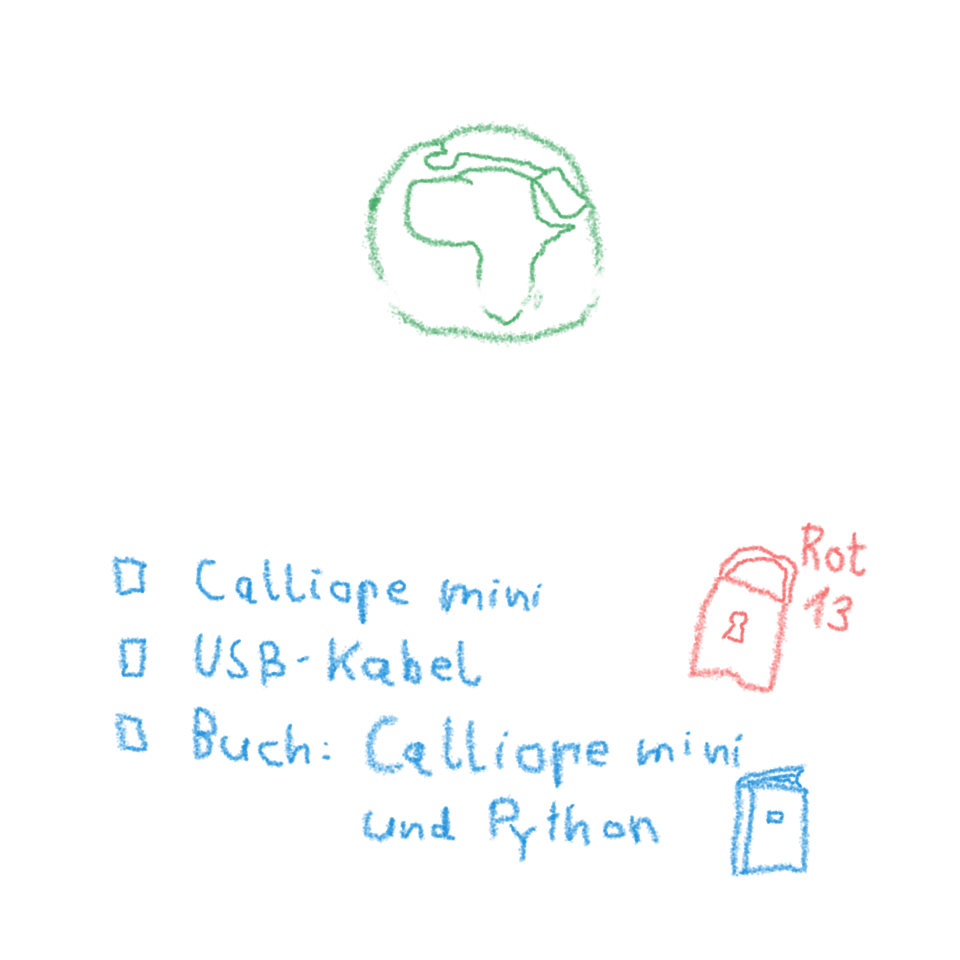 Rot
13
Calliope mini
USB-Kabel
Buch: Calliope mini
und Python